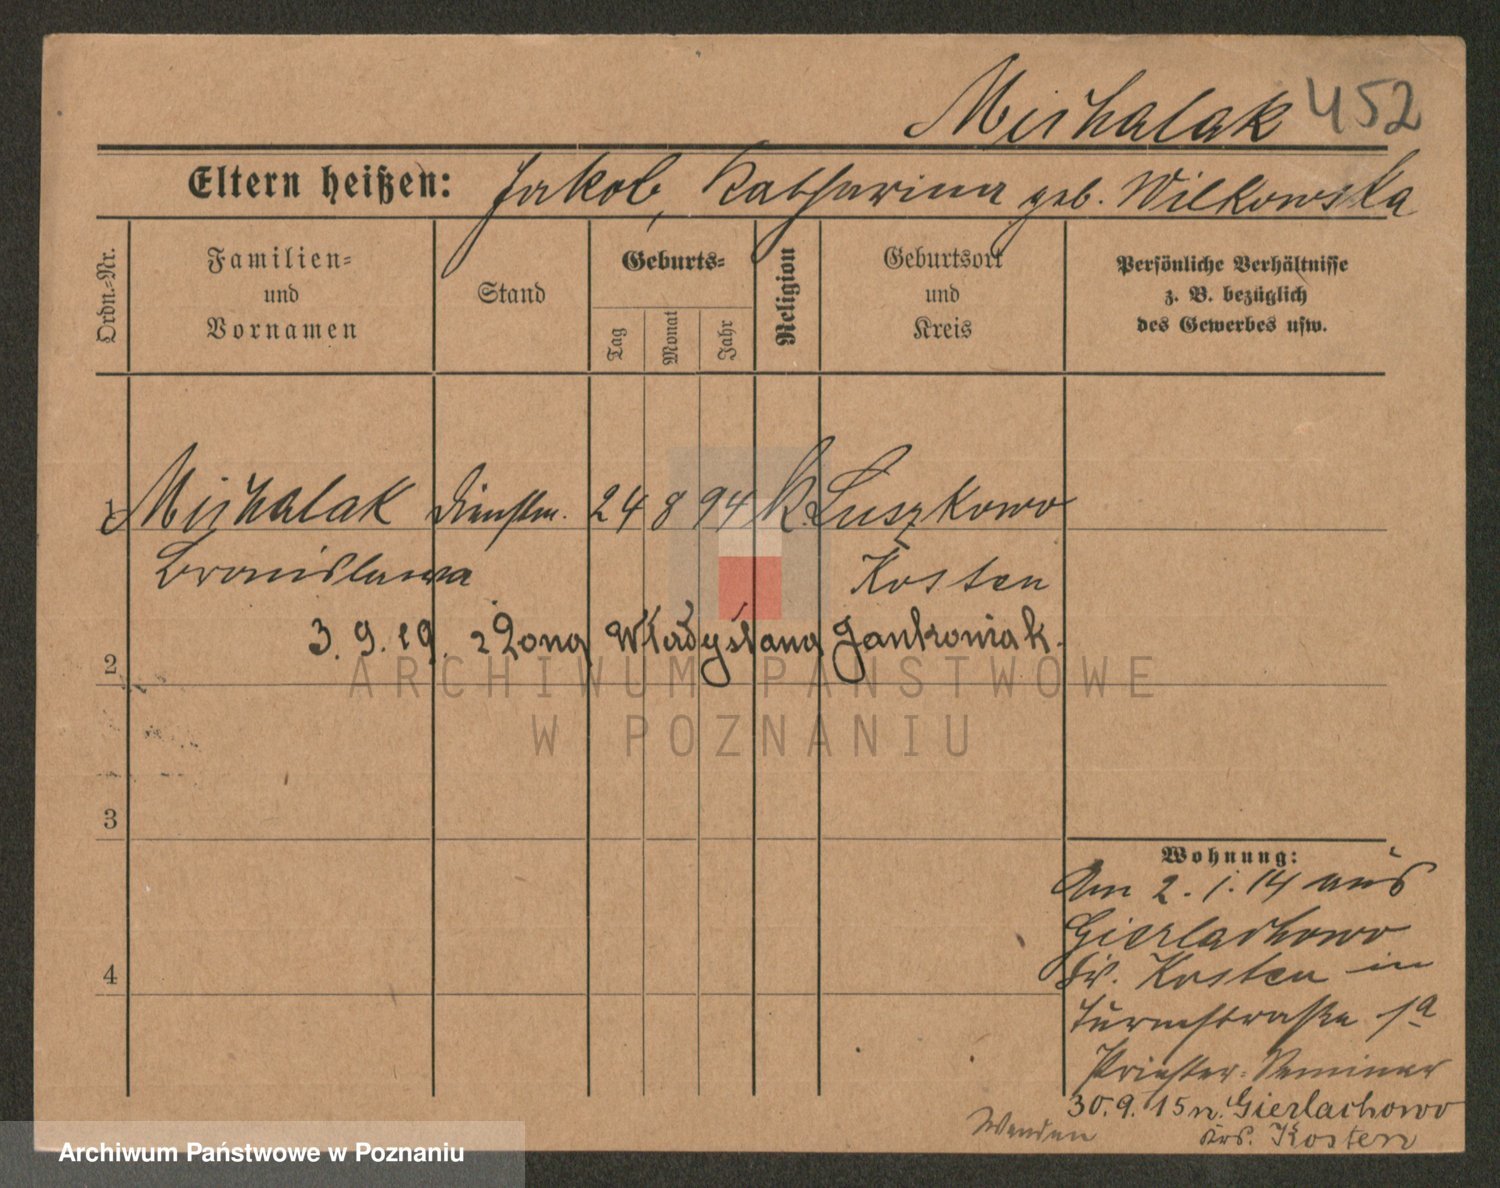 Michalak 452
Eltern heißen: Jakob, Katharina geb. Wilkowska
Ordn.-Nr.
Familien-
und
Vornamen
Stand
Geburts-
Tag
Monat
Jahr
Religion
Geburtsort
und
Kreis
Persönliche Verhältnisse
z. B. bezüglich
des Gewerbes usw.
1 Michalak Dienstm. 24 8 94 K. Luszkowo
Bronislawa Kosten
3.9.19. żoną Władysława Jankowiak.
2
ARCHIWUM PAŃSTWOWE
W POZNANIU
3
Wohnung:
Am 2.1.14 aus
Gierlachowo
Kr. Kosten in
4
Turmstraße 1a
Priester-Seminar
30.9.15 n. Gierlachowo
Krs. Kosten
Wenden
Archiwum Państwowe w Poznaniu